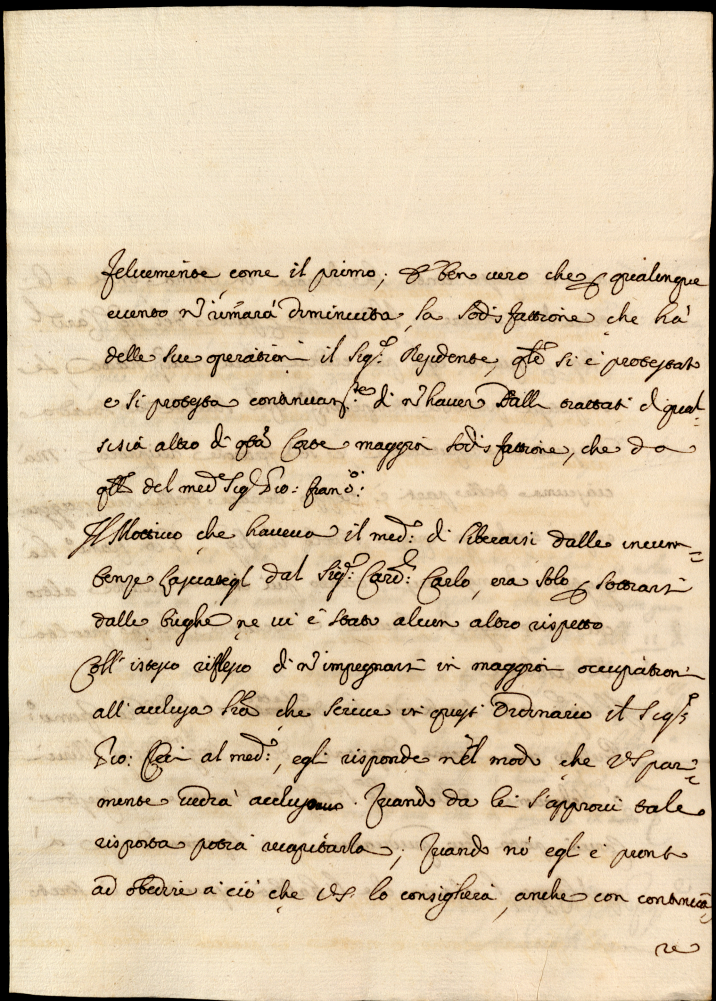 felicemente come il primo; è ben vero che p qualunque
evento nò rimarrà diminuita la sodisfattione che hà
delle sue operationi il Sigr. Residente, qle si è protestato
e si protesta continuamte. di nò haver dalli trattati d qual-
sisia altro di qta Corte maggior sodisfattione, che da
qlli del med Sigr Gio: Franco:
Il Mottivo che haveva il med: di liberarsi dalle incum-
benze lasciategl dal Sigr. Card: Carlo, era solo p sottrarsi
dalle brighe ne vi è stato alcun altro rispetto
Coll' istesso riflesso di nò impegnarsi in maggior occupation
all' acclusa lra che scrive in quest Ordinario il Sigr
Gio: al med:, egli risponde nel modo che VS par-
mente vedrà accluso. Quando da lei s'approvi tale
risposta potrà recapitarla; Quando nò egli è pronto
ad obedire à ciò che VS. lo consiglierà, anche con continua
re